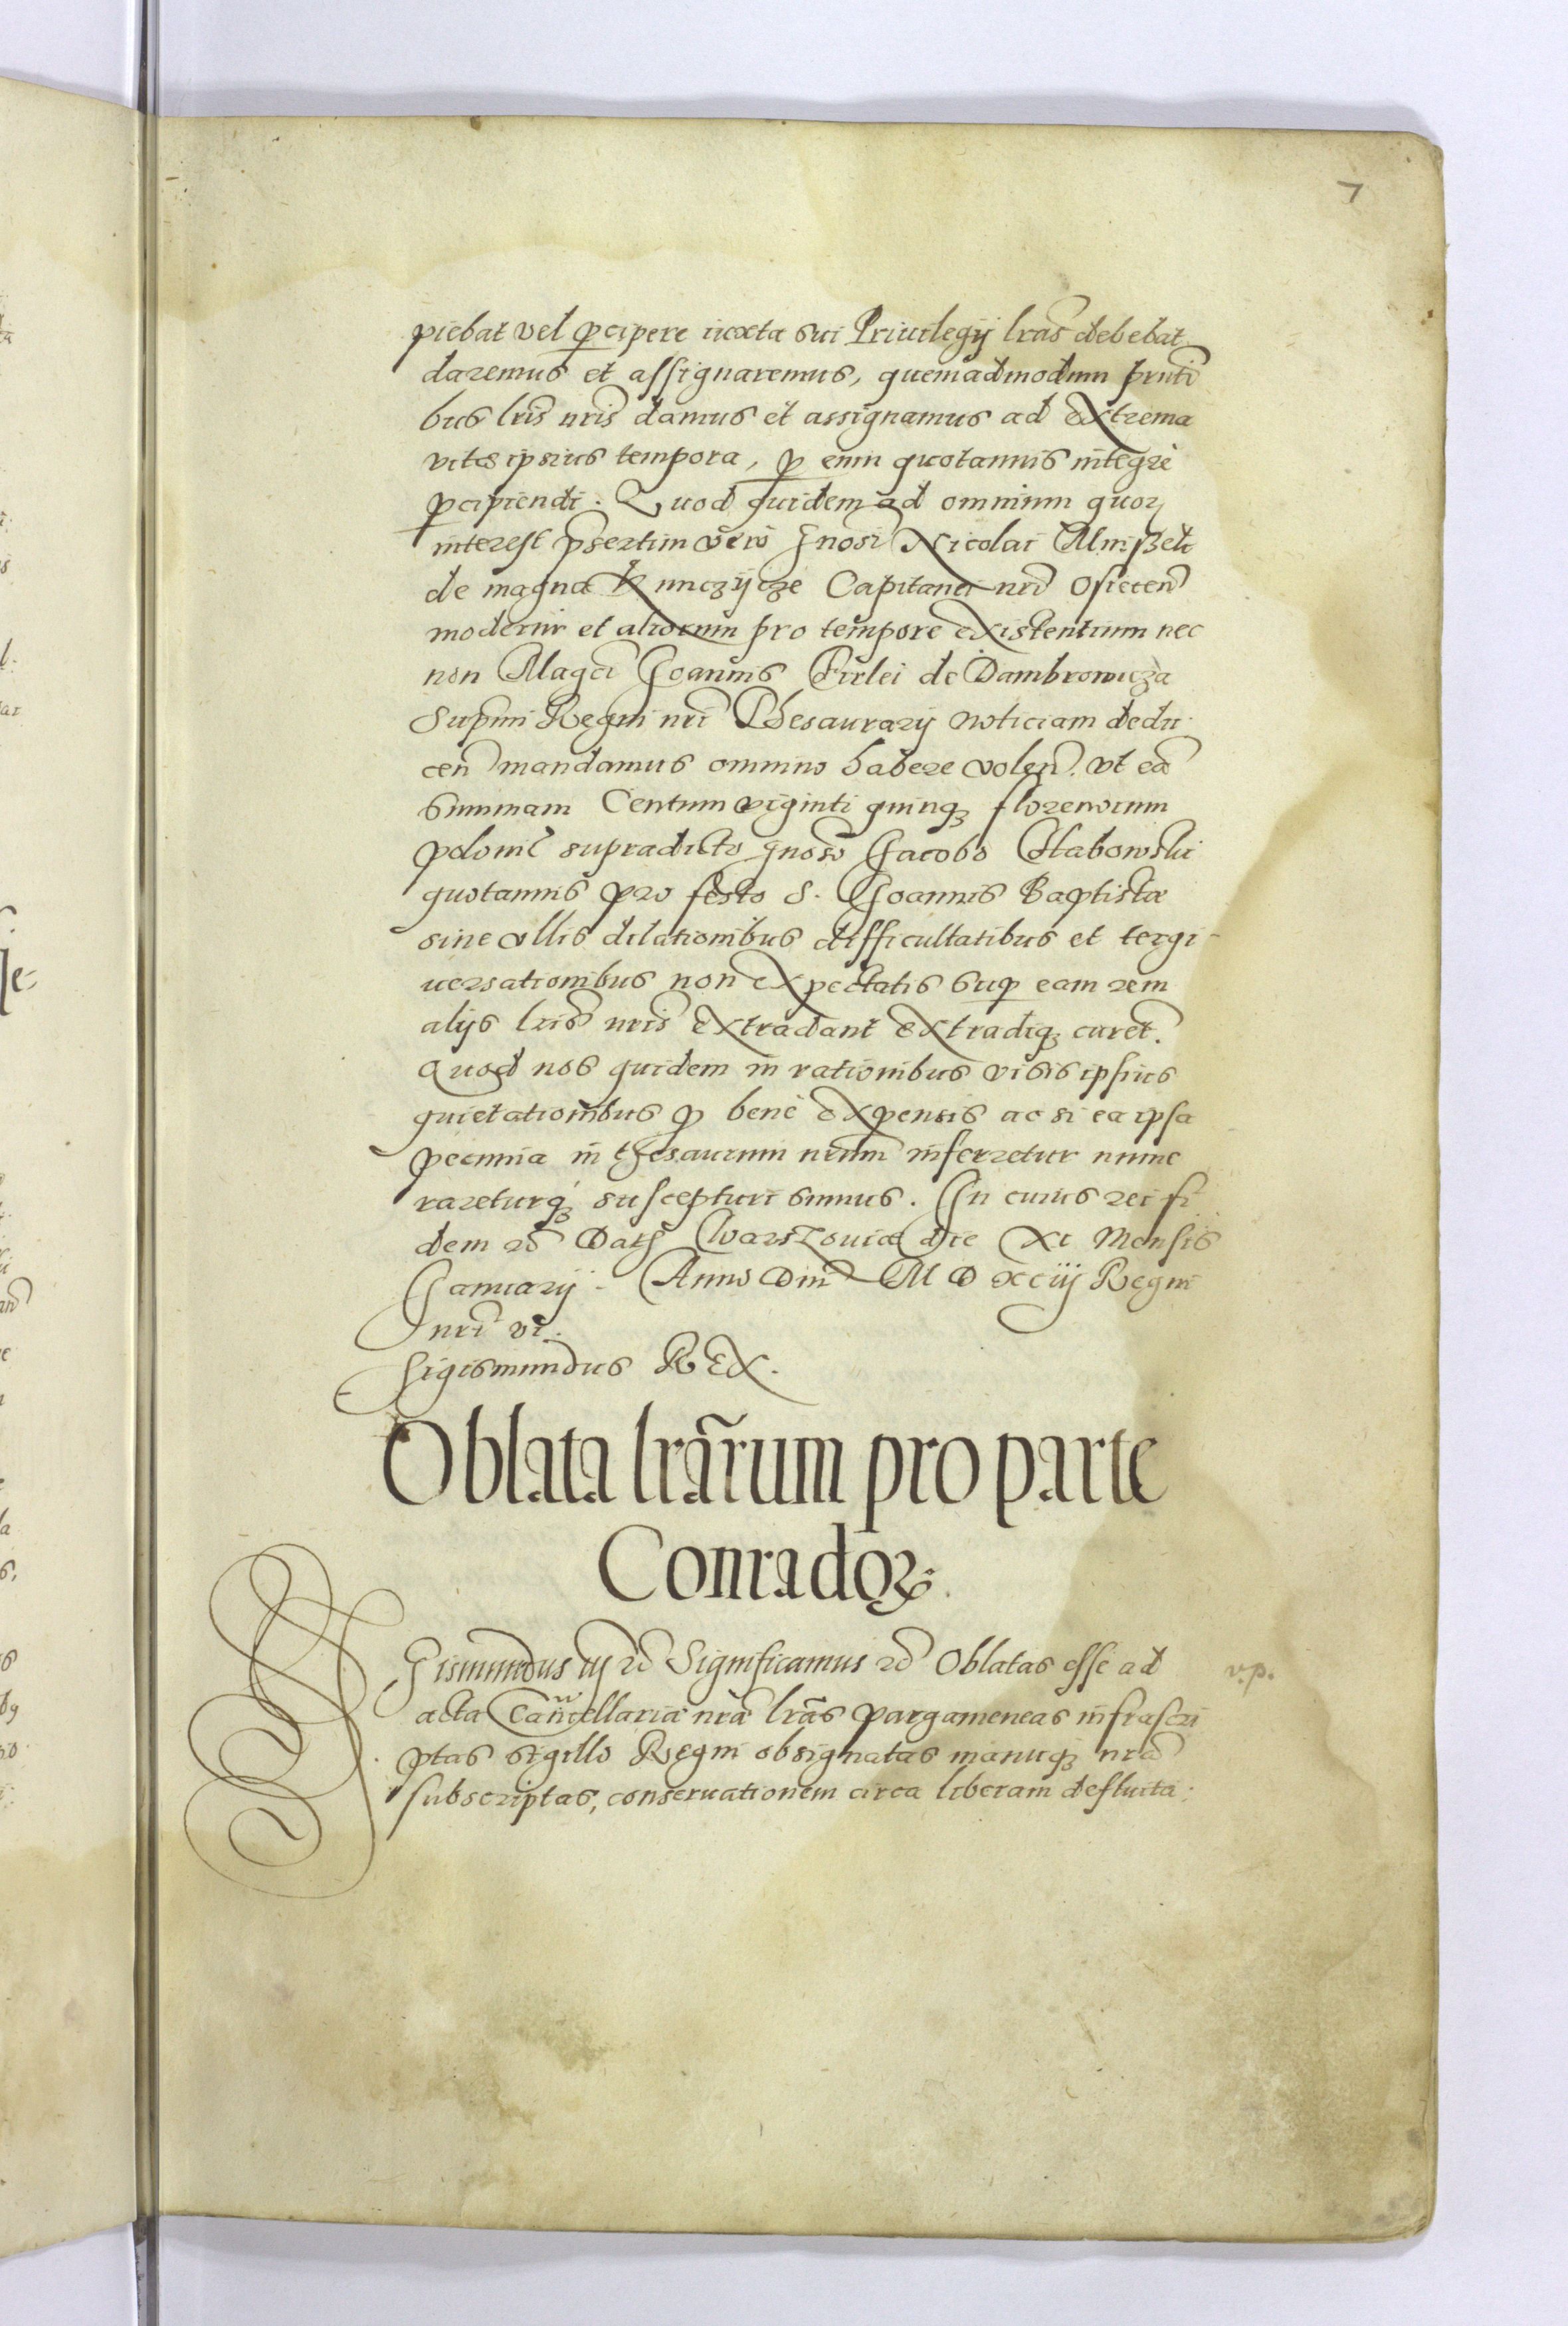 7
piebat vel ꝑcipere iuxta sui Priuilegij lras̃ debebat
daremus et assignaremus, quemadmodum pr̃nti
bus lris̃ nris̃ damus et assignamus ad extrema
vitæ ipsius tempora, ꝑ eum quotannis integrè
ꝑcipiendi. Quod quidem ad omnium quorꝫ
interest p̃sertim verò Gnosi͂ Nicolai Mnißek
de magna Kunczÿcze Capitanei nrĩ Osiecen͂
moderni et aliorum pro tempore existentium nec
non Magci͂ Joannis Firlei de Dambrowicza
Supmi͂ Regni nrĩ Thesaurarij noticiam dedu
cen͂ mandamus omnino habere volen͂. vt eã
summam Centum viginti quinqꝫ florenorum
polonil͂ supradicto Gnoso͂ Jacobo Slabowski
quotannis pro festo S. Joannis Baptistæ
sine vllis dilationibus difficultatibus et tergi-
uersationibus non expectatis suꝑ eam rem
alijs lris̃ nris̃ extradant extradiqꝫ curet͂.
Quod nos quidem in rationibus visis ipsius
quietationibus ꝑ benè expensis ac si ea ipsa
pecunia in thesaurum nrum͂ inferretur nume
rareturqꝫ suscepturi sumus. In cuius rei fi
dem rc͂ Dat͂ Warszouiæ die XI Mensis
Januarij. Anno Dni͂ M D XCIIJ Regni
nrĩ vi.
Sigismundus REX.
Oblata lrãrum pro parte
Conradoꝝ.
SIgismundus iij rc͂ Significamus rc͂ Oblatas esse ad v.p.
acta Cancellariæ nræ͂ lrãs pargameneas infrascri
ptas sigillo Regni obsignatas manuqꝫ nrã
subscriptas, conseruationem circa liberam defluita: